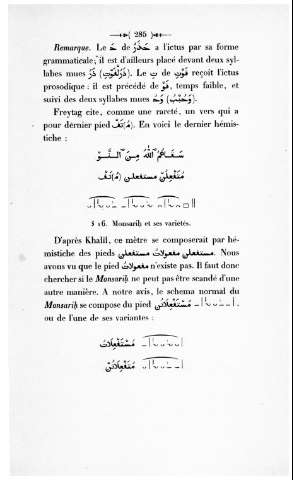 ( 285 )
Remarque. Le حَ de حَذَرُ a l'ictus par sa forme
grammaticale; il est d'ailleurs placé devant deux syl-
labes mues ذَرُ (ذَرُلْفَوْتِ). Le تِ de فَوْتِ reçoit l'ictus
prosodique : il est précédé de فَوْ, temps faible, et
suivi des deux syllabes mues وَحُ (وَحُبْبُ).
Freytag cite, comme une rareté, un vers qui a
pour dernier pied (مُ)تَفْ. En voici le dernier hémis-
tiche :
اللهُ مِنَ
مُتَفْعِلُنْ مستفعلن (مُ)تَفْ
§ 16. Monsariḥ et ses variétés.
D'après Khalil, ce mètre se composerait par hé-
mistiche des pieds مستفعلن مفعولات مستفعلن. Nous
avons vu que le pied مفعولات n'existe pas. Il faut donc
chercher si le Monsariḥ ne peut pas être scandé d'une
autre manière. A notre avis, le schema normal du
Monsariḥ se compose du pied مُسْتَفْعِلَاتُنْ,
ou de l'une de ses variantes :
مُسْتَفْعِلَاتُ
مُتَفْعِلَاتُنْ